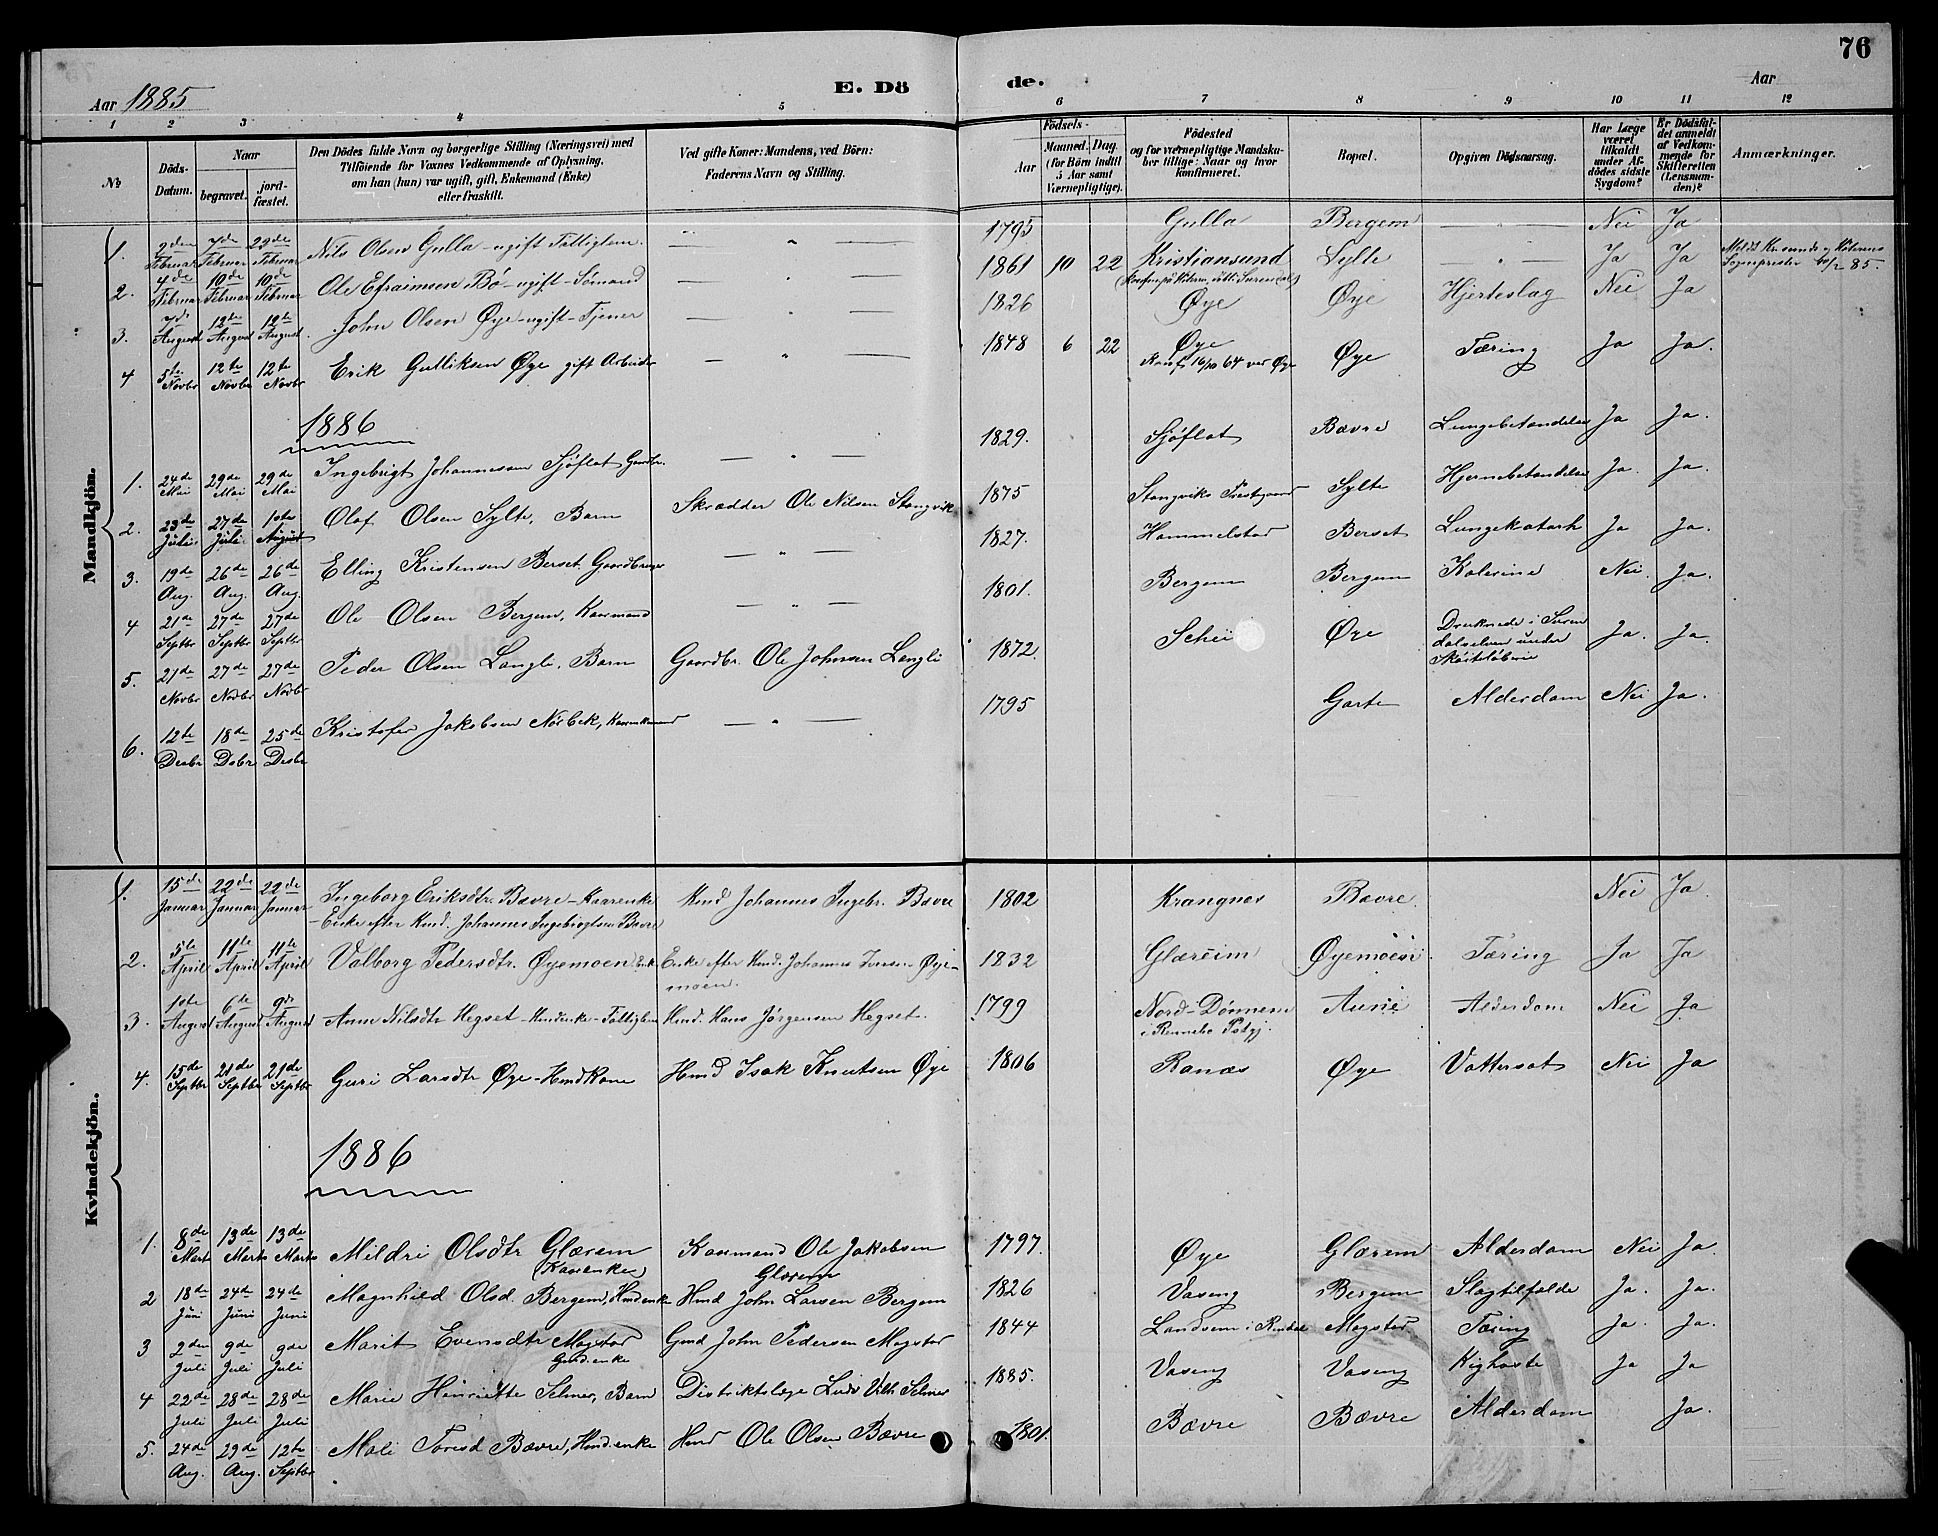 76
Aar 1885
E. Dö
de.
Aar
1 2 3 4 5 6 7 8 9 10 11 12
No.
Döds-Datum.
Naar
begravet.
jord-fæstet.
Den Dödes fulde Navn og borgerlige Stilling (Næringsvei) med
Tilföiende for Voxnes Vedkommende af Oplysning,
om han (hun) var ugift, gift, Enkemand (Enke)
eller fraskilt.
Ved gifte Koner: Mandens, ved Börn:
Faderens Navn og Stilling.
Födsels-
Aar
Maaned.
Dag.
(for Börn indtil
5 Aar samt
Værnepligtige).
Födested
og for værnepligtige Mandsku-
ber tillige: Naar og hvor
konfirmeret.
Bopæl.
Opgiven Dödsaarsag.
Har Læge
været
tilkaldt
under Af-
dödes sidste
Sygdom?
Er Dödsfal-
det anmeldt
af Vedkom-
mende for
Skifteretten
(Lensman-
den)?
Anmærkninger.
Mandkjön.
1. 2den Februar 7de Februar 23de Februar Nils Olsen Gulla - ugift Fattiglem. — " — 1795 Gulla Bergem — " — Nei Ja
2. 4de Februar 10de Februar 10de Februar Ole Efraimsen Bø - ugift - Sømand — " — 1861 10 22 Kristiansund Sylte — " — Ja Ja Sognepræster 10/2 85.
3. 7de August 12te August 12te August John Olsen Øye - ugift - Tjener — " — 1826 Øye Øye Hjerteslag Nei Ja
4 5te Novbr 12te Novbr 12te Novbr Erik Gulliksen Øye gift Arbeider — " — 1848 6 22 Øye Konf. 16/10 64 ved Øye Øye Tæring Ja Ja.
1886
1. 24de Mai 29de Mai 29de Mai Ingebrigt Johannessen Sjøflot Gaardbr. — " — 1829. Sjøflot Bævre Lungebetændelse Ja Ja.
2. 23de Juli 27de Juli 1ste August Olaf Olsen Sylte, Barn Skrædder Ole Nilsen Stangvik 1875 Stangviks Prestegaard Sylte Hjernebetændelse Ja. Ja.
3. 19de Aug. 26de Aug. 26de Aug. Elling Kristensen Berset Gaardbruger — " — 1827. Hammelstad Berset Lungekatarh Ja Ja.
4 21de Septbr 27de Septbr 27de Septbr Ole Olsen Bergem, Kaarmand — " — 1801. Bergem Bergem Kolerine Nei. Ja.
5. 21de Novbr 27de Novbr 27de Novbr Peder Olsen Langli, Barn Gaardbr. Ole Johnsen Langli 1872. Schei Øye Druknede i Suren
dalselven under
Skøiteløbning Ja. Ja.
6. 12te Desbr 18de Dsbr 25de Desbr Kristofer Jakobsen Nörbek, — " — 1795 Garte Alderdom Nei Ja.
Kvindekjön.
1. 15de Januar 22de Januar 22de Januar Ingeborg Eriksdtr. Bævre - Kaarenke
- Enke efter Hmd. Johannes Ingebrigtsen Bævre Hmd Johannes Ingebr. Bævre 1802 Krangnes Bævre. Nei Ja.
2. 5te April 11te April 11te April Valborg Pedersdtr. Øyemoen Enk Enke efter Hmd. Johannes Iversen Øye-
moen. 1832 Glæreim Øyemoen Tæring Ja Ja
3. 1ste August 6te August 9de August Anne Nilsdtr Hegset - Hmdenke - Fattiglem Hmd. Hans Jørgensen Hegset. 1799 Nord-Dønnem
i Rennebo Pstgj. Aune Alderdom Nei Ja
4. 15de Septbr 21de Septbr 21de Septbr Guri Larsdtr Øye - Hmdkone Hmd Isak Knutsen Øye 1806 Ranæs Øye Vattersot Nei Ja
1886
1. 8de Marts 13de Marts 13de Marts Mildri Olsdtr Glærem
(Kaarenke) Kaarmand Ole Jakobsen
Glærem 1797. Øye Glærem Alderdom Nei Ja.
2 18de Juni 24de Juni 24de Juni Magnhild Olsd. Bergem, Hmdenke Hmd John Larsen Bergem 1826 Vaseng Bergem Slagtilfælde Ja. Ja.
3 2den Juli 9de Juli 9de Juli Marit Evensdtr Mogstad
Gmd.enke Gmd John Pedersen Mogstad 1844 Landsem i Rindal Mogstad Tæring Ja. Ja.
4 22de Juli 28de Juli 28de Juli Marie Henriette Selmer, Barn Distriktslæge Ludv. Vilh. Selmer 1885. Vaseng Vaseng Kighoste Ja Ja
5. 24de Aug. 29de Aug. 12te Septbr Mali Toresd Bævre, Hmd.enke Hmd Ole Olsen Bævre 1801. Bævre Bævre Alderdom Ja.